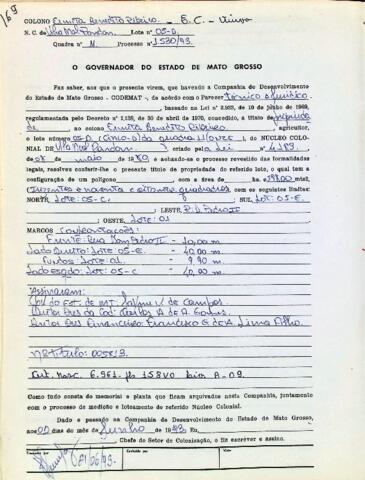 169
COLONO Ermita Benedito Ribeiro - E.C. - Viuva
N. C. de Vila Mal Rondon Lote n° 05-D
Quadra n° N Processo n° 1530/93.
O GOVERNADOR DO ESTADO DE MATO GROSSO
Faz saber, aos que o presente virem, que havendo a Companhia de Desenvolvimento
do Estado de Mato Grosso - CODEMAT -, de acordo com o Parecer técnico e jurídico
baseada na Lei n° 2.933, de 19 de junho de 1969,
regulamentada pelo Decreto n° 1.135, de 30 de abril de 1970, concedido, a título de
ao colono Ermita Benedito Ribeiro, agricultor,
o lote número 05-D da quadra do NÚCLEO COLO-
NIAL DE Vila Mal Rondon criado pela Lei n° 4.159.
de 08 de maio de 1980 e achando-se o processo revestido das formalidades
legais, resolveu conferir-lhe o presente título de propriedade do referido lote, o qual tem a
configuração de um polígono com a área de 398,00 metros
Trezentos e noventa e oito metros quadrados com os seguintes limites:
NORTE, Lote: 05-C SUL Lote: 05-E.
LESTE, R. D. Pedro II
OESTE, Lote: 01
MARCOS Confrontações:
Frente: Rua Dom Pedro II - 10,00 m.
Lado Direito: Lote: 05-E - 40,00 m.
Fundos: Lote: 01. - 9,90 m.
Lado Esqdo: Lote: 05-C - 40,00 m.
Assinaram:
Gov. do Est. de MT. Jaime V. de Campos.
Diretor Pres. da Cod: A. de A. Gomes.
Diretor Fin. Financeiro: Francisco G. de A. Lima Filho.
N° Título: 005813.
Cert. Nasc. 6.961. fls 158V0 Livro A-09.
Como tudo consta do memorial e planta que ficam arquivados nesta Companhia, juntamente
com o processo de medição e loteamento do referido Núcleo Colonial.
Dado e passado na Companhia de Desenvolvimento do Estado de Mato Grosso,
aos 02 dias do mês de Junho de 1993. Eu,
Chefe do Setor de Colonização, o fiz escrever e assino.
Emitido por
Conferido por
Visto
02/06/93.